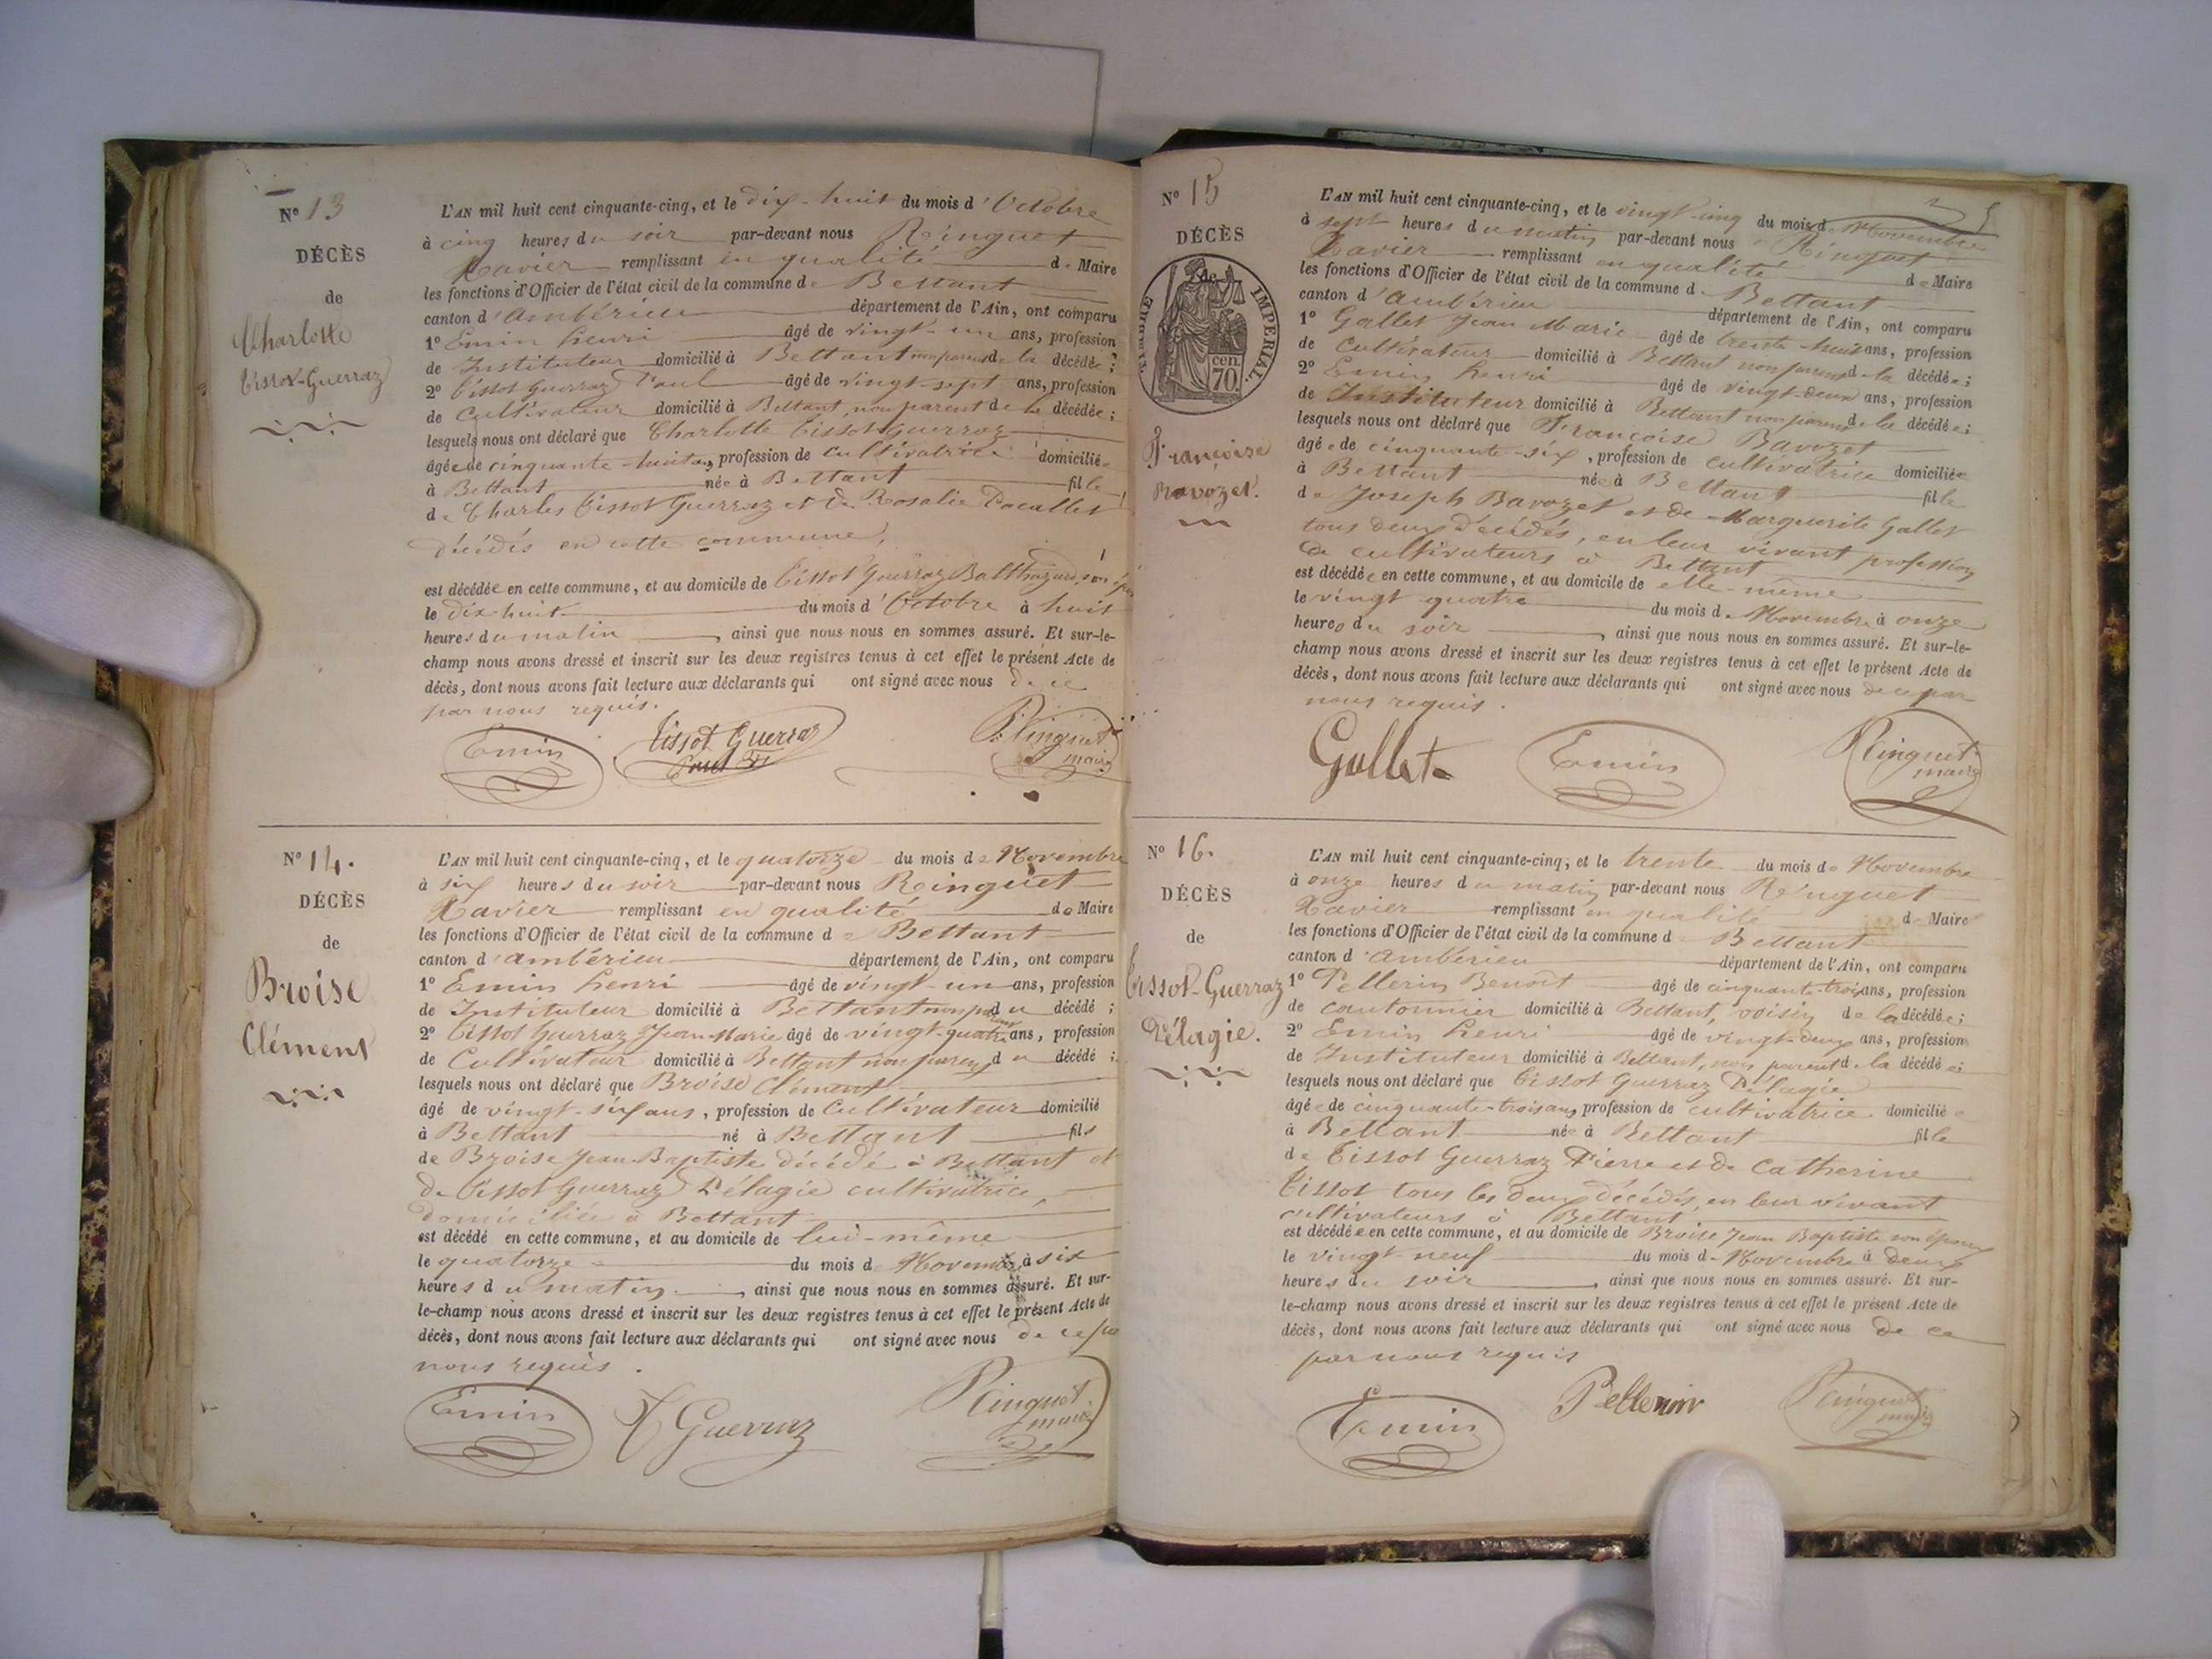 N° 13
DÉCÈS
de
Charlotte
Tissot-Guerraz
L'AN mil huit cent cinquante-cinq, et le dix-huit du mois d'Octobre
à cinq heures du soir par-devant nous Reinguet
Xavier remplissant en qualité de Maire
les fonctions d'Officier de l'état civil de la commune de Bettant
canton d'ambérieu département de l'Ain, ont comparu
1° Emin henri âgé de vingt-un ans, profession
de Instituteur domicilié à Bettant non parent de la décédée ;
2° Tissot Guerraz Paul âgé de vingt-sept ans, profession
de Cultivateur domicilié à Bettant, non parent de la décédée ;
lesquels nous ont déclaré que Charlotte Tissot Guerraz
âgée de cinquante-huit ans, profession de cultivatrice domiciliée
à Bettant née à Bettant fille
de Charles Tissot Guerraz et de Rosalie
décédés en cette commune,
est décédée en cette commune, et au domicile de Tissot Guerraz Balthazard, son
le dix-huit du mois d'Octobre à huit
heures du matin, ainsi que nous nous en sommes assuré. Et sur-le-
champ nous avons dressé et inscrit sur les deux registres tenus à cet effet le présent Acte de
décès, dont nous avons fait lecture aux déclarants qui ont signé avec nous de ce
par nous requis.
Emin Tissot Guerraz Paul Reinguet maire
N° 14.
DÉCÈS
de
Broise
Clément
L'AN mil huit cent cinquante-cinq, et le quatorze du mois de Novembre
à six heures du soir par-devant nous Reinguet
Xavier remplissant en qualité de Maire
les fonctions d'Officier de l'état civil de la commune de Bettant
canton d'ambérieu département de l'Ain, ont comparu
1° Emin henri âgé de vingt-un ans, profession
de Instituteur domicilié à Bettant non parent du décédé ;
2° Tissot Guerraz Jean-Marie âgé de vingt-quatre ans, profession
de Cultivateur domicilié à Bettant non parent du décédé ;
lesquels nous ont déclaré que Broise Clément
âgé de vingt-six ans, profession de Cultivateur domicilié
à Bettant né à Bettant fils
de Broise Jean-Baptiste décédé à Bettant et
de Tissot Guerraz Pélagie cultivatrice,
domiciliée à Bettant
est décédé en cette commune, et au domicile de lui-même
le quatorze du mois de Novembre à six
heures du matin, ainsi que nous nous en sommes assuré. Et sur-
le-champ nous avons dressé et inscrit sur les deux registres tenus à cet effet le présent Acte de
décès, dont nous avons fait lecture aux déclarants qui ont signé avec nous de ce par
nous requis.
Emin T Guerraz Reinguet maire
N° 15
DÉCÈS
de
TIMBRE IMPERIAL.
70 cen
Françoise
Bavozet.
L'AN mil huit cent cinquante-cinq, et le vingt-cinq du mois de Novembre
à sept heures du matin par-devant nous Reinguet
Xavier remplissant en qualité de Maire
les fonctions d'Officier de l'état civil de la commune de Bettant
canton d'ambérieu département de l'Ain, ont comparu
1° Gallet Jean Marie âgé de trente-huit ans, profession
de Cultivateur domicilié à Bettant non parent de la décédée ;
2° Emin henri âgé de vingt-deux ans, profession
de Instituteur domicilié à Bettant non parent de la décédée ;
lesquels nous ont déclaré que Françoise Bavozet
âgée de cinquante-six, profession de cultivatrice domiciliée
à Bettant née à Bettant fille
de Joseph Bavozet et de Marguerite Gallet
tous deux décédés, en leur vivant profession
de cultivateurs à Bettant
est décédée en cette commune, et au domicile de elle-même
le vingt quatre du mois de Novembre à onze
heures du soir, ainsi que nous nous en sommes assuré. Et sur-le-
champ nous avons dressé et inscrit sur les deux registres tenus à cet effet le présent Acte de
décès, dont nous avons fait lecture aux déclarants qui ont signé avec nous de ce par
nous requis.
Gallet Emin Reinguet maire
N° 16.
DÉCÈS
de
Tissot-Guerraz
Pélagie.
L'AN mil huit cent cinquante-cinq, et le trente du mois de Novembre
à onze heures du matin par-devant nous Reinguet
Xavier remplissant en qualité de Maire
les fonctions d'Officier de l'état civil de la commune de Bettant
canton d'ambérieu département de l'Ain, ont comparu
1° Pellerin Benoît âgé de cinquante-trois ans, profession
de cantonnier domicilié à Bettant, voisin de la décédée ;
2° Emin henri âgé de vingt-deux ans, profession
de Instituteur domicilié à Bettant, non parent de la décédée ;
lesquels nous ont déclaré que Tissot Guerraz Pélagie
âgée de cinquante-trois ans, profession de cultivatrice domiciliée
à Bettant née à Bettant fille
de Tissot Guerraz Pierre et de Catherine
Tissot tous les deux décédés, en leur vivant
cultivateurs à Bettant
est décédée en cette commune, et au domicile de Broise Jean Baptiste son époux
le vingt-neuf du mois de Novembre à deux
heures du soir, ainsi que nous nous en sommes assuré. Et sur-
le-champ nous avons dressé et inscrit sur les deux registres tenus à cet effet le présent Acte de
décès, dont nous avons fait lecture aux déclarants qui ont signé avec nous de ce
par nous requis
Emin Pellerin Reinguet maire